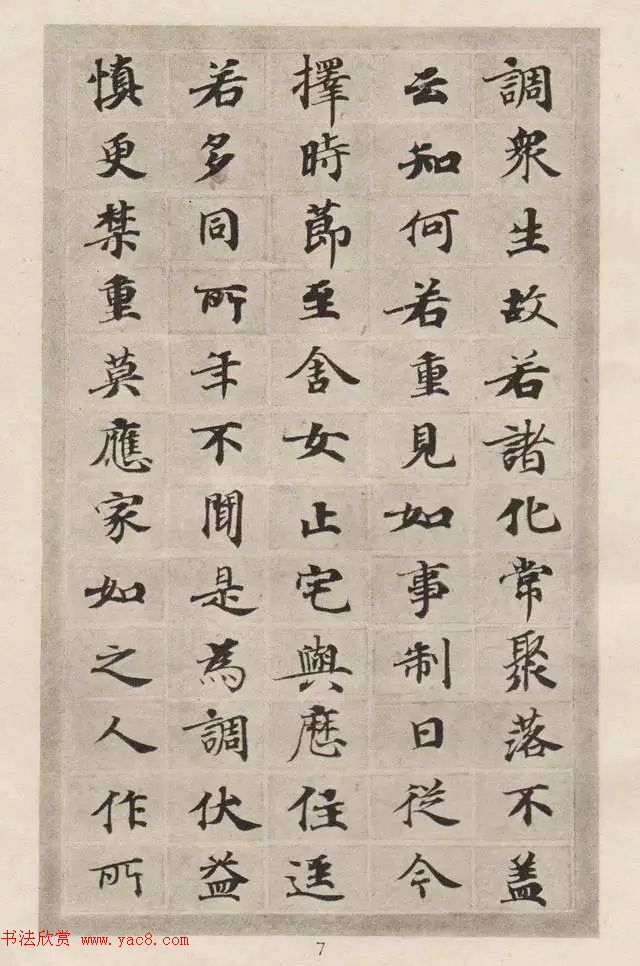 調衆生故若諸化常聚落不盖
云知何若重見如事制日従今
擇時節至舍女止宅與應住逕
若多同所年不聞是為調伏益
慎更禁重莫應家如之人作所
书法欣赏 www.yac8.com
7